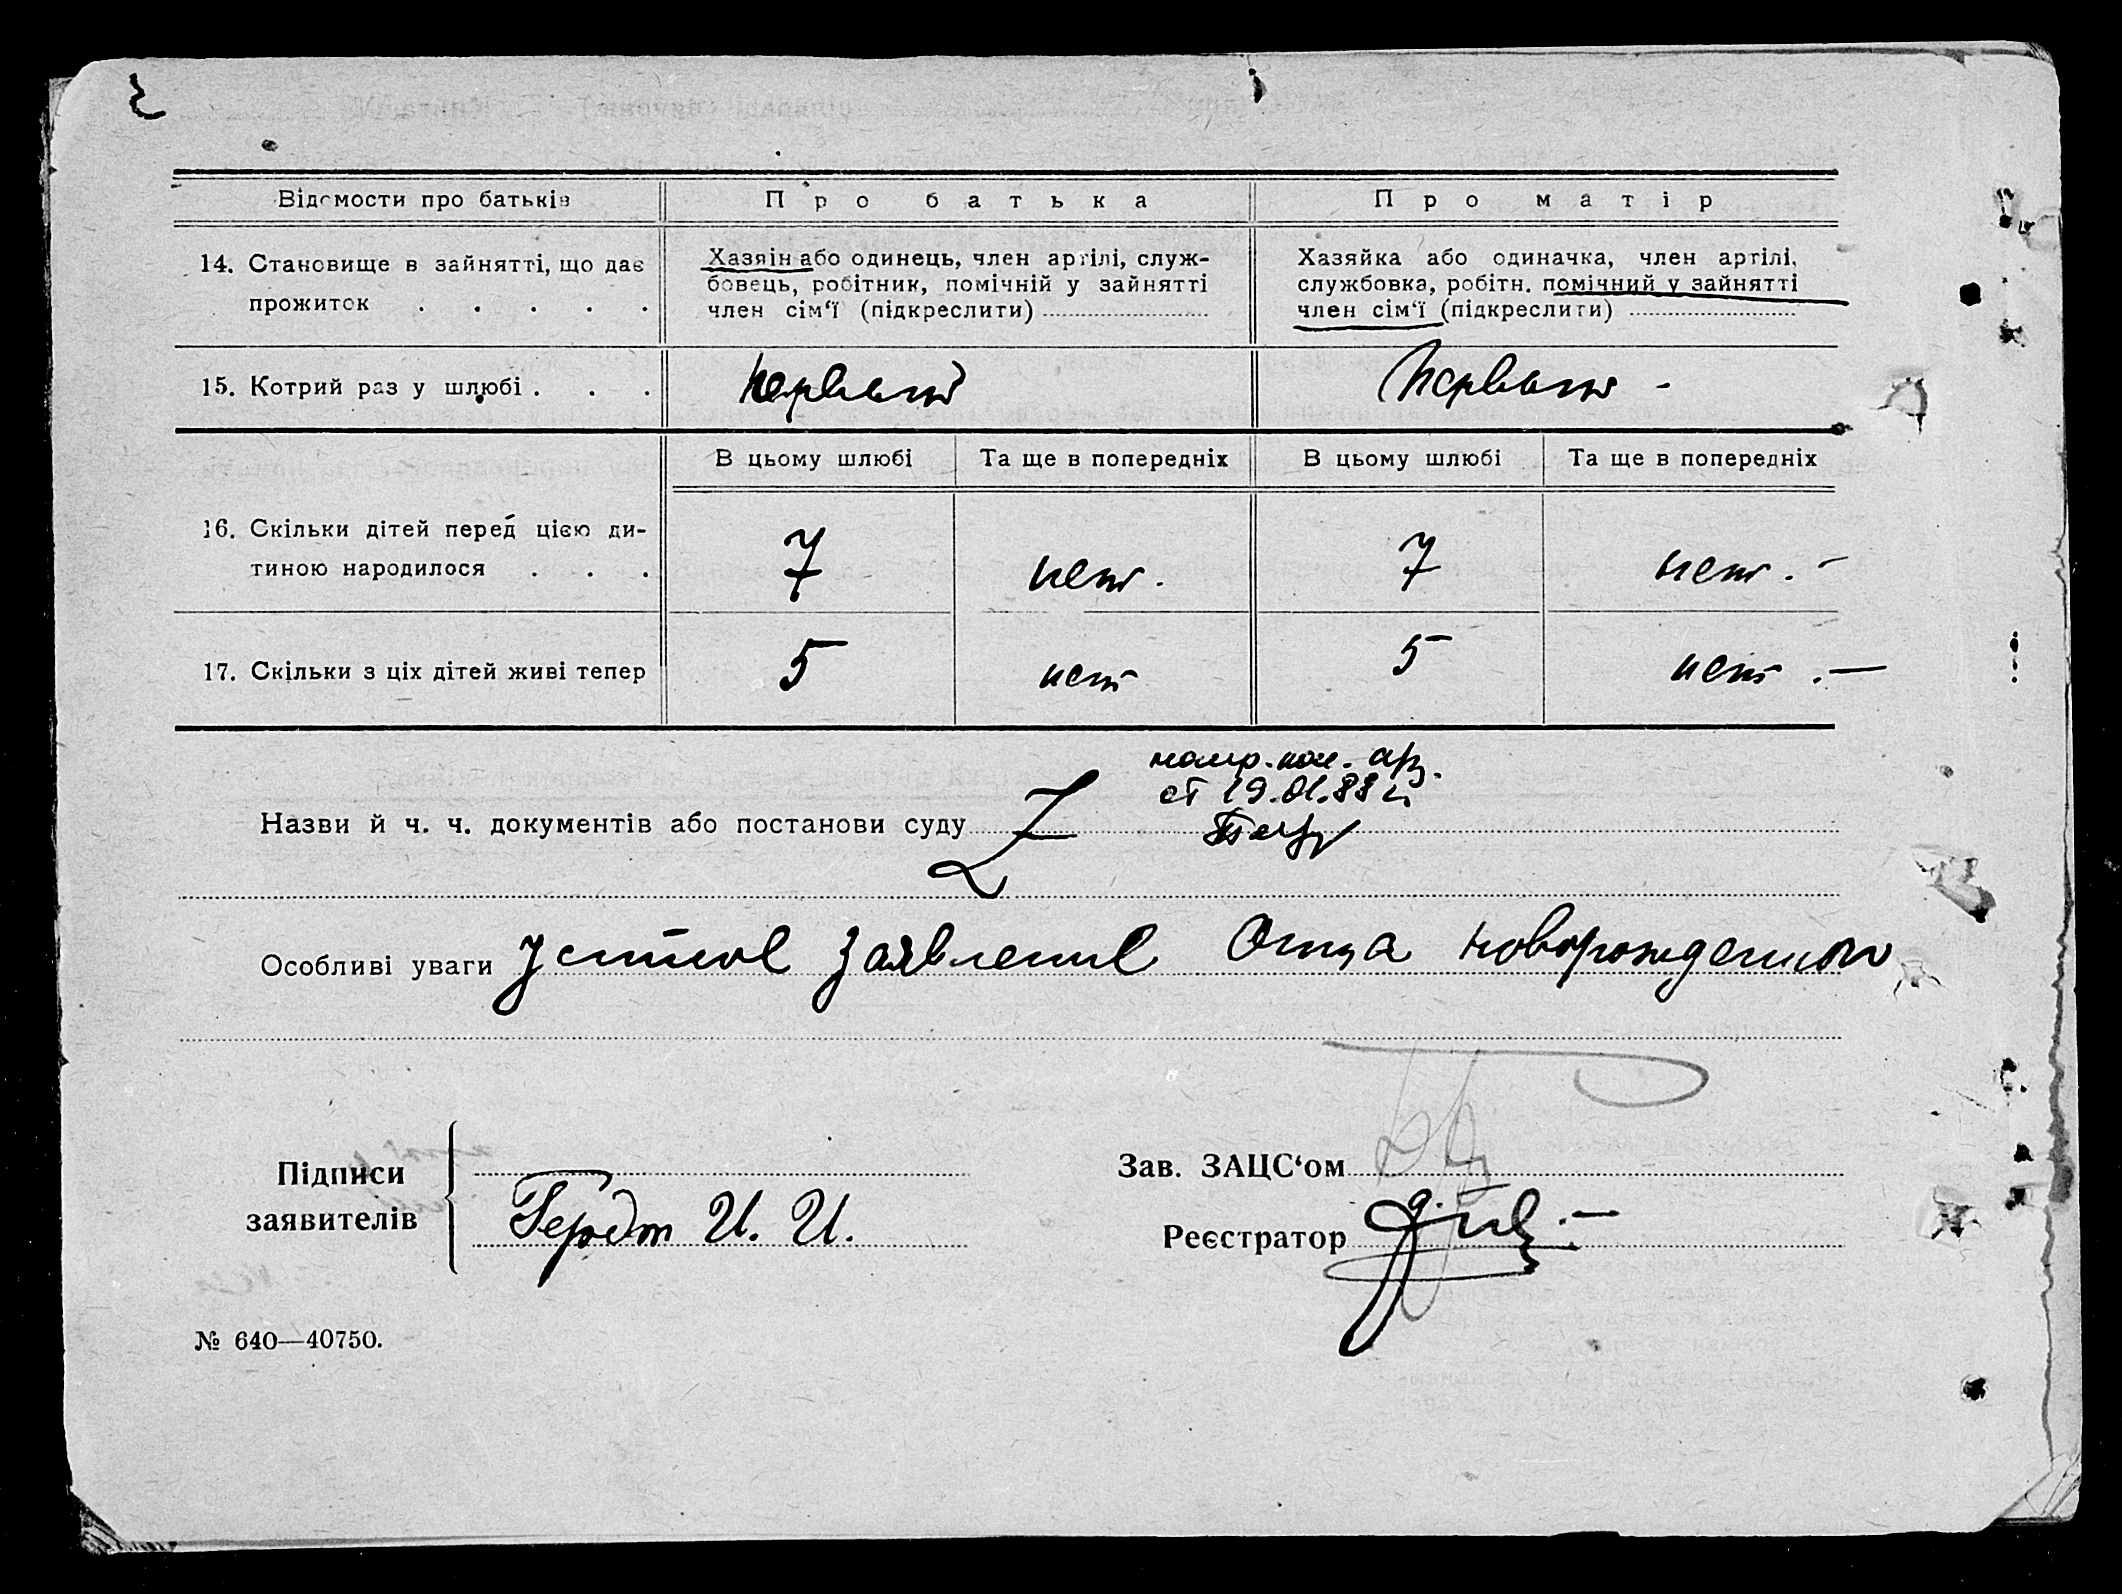 Відомости про батьків
Про батька
Про матір
14. Становище в зайнятті, що дає
прожиток . . . . .
Хазяїн або одинець, член артілі, служ-
бовець, робітник, помічній у зайнятті
член сім‘ї (підкреслити)
Хазяйка або одиначка, член артілі,
службовка, робітн. помічний у зайнятті
член сім‘ї (підкреслити)
15. Котрий раз у шлюбі . . .
первый
Первый -
В цьому шлюбі
Та ще в попередніх
В цьому шлюбі
Та ще в попередніх
16. Скільки дітей перед цією ди-
тиною народилося . . .
7
нет.
7
нет. -
17. Скільки з ціх дітей живі тепер
5
нет
5
нет. —
от 19.01.88 г.
Назви й ч. ч. документів або постанови суду
Особливі уваги Устное Заявление Отца новорожденного
Підписи
заявителів
Гердт И. И.
Зав. ЗАЦС‘ом
Реєстратор
№ 640—40750.